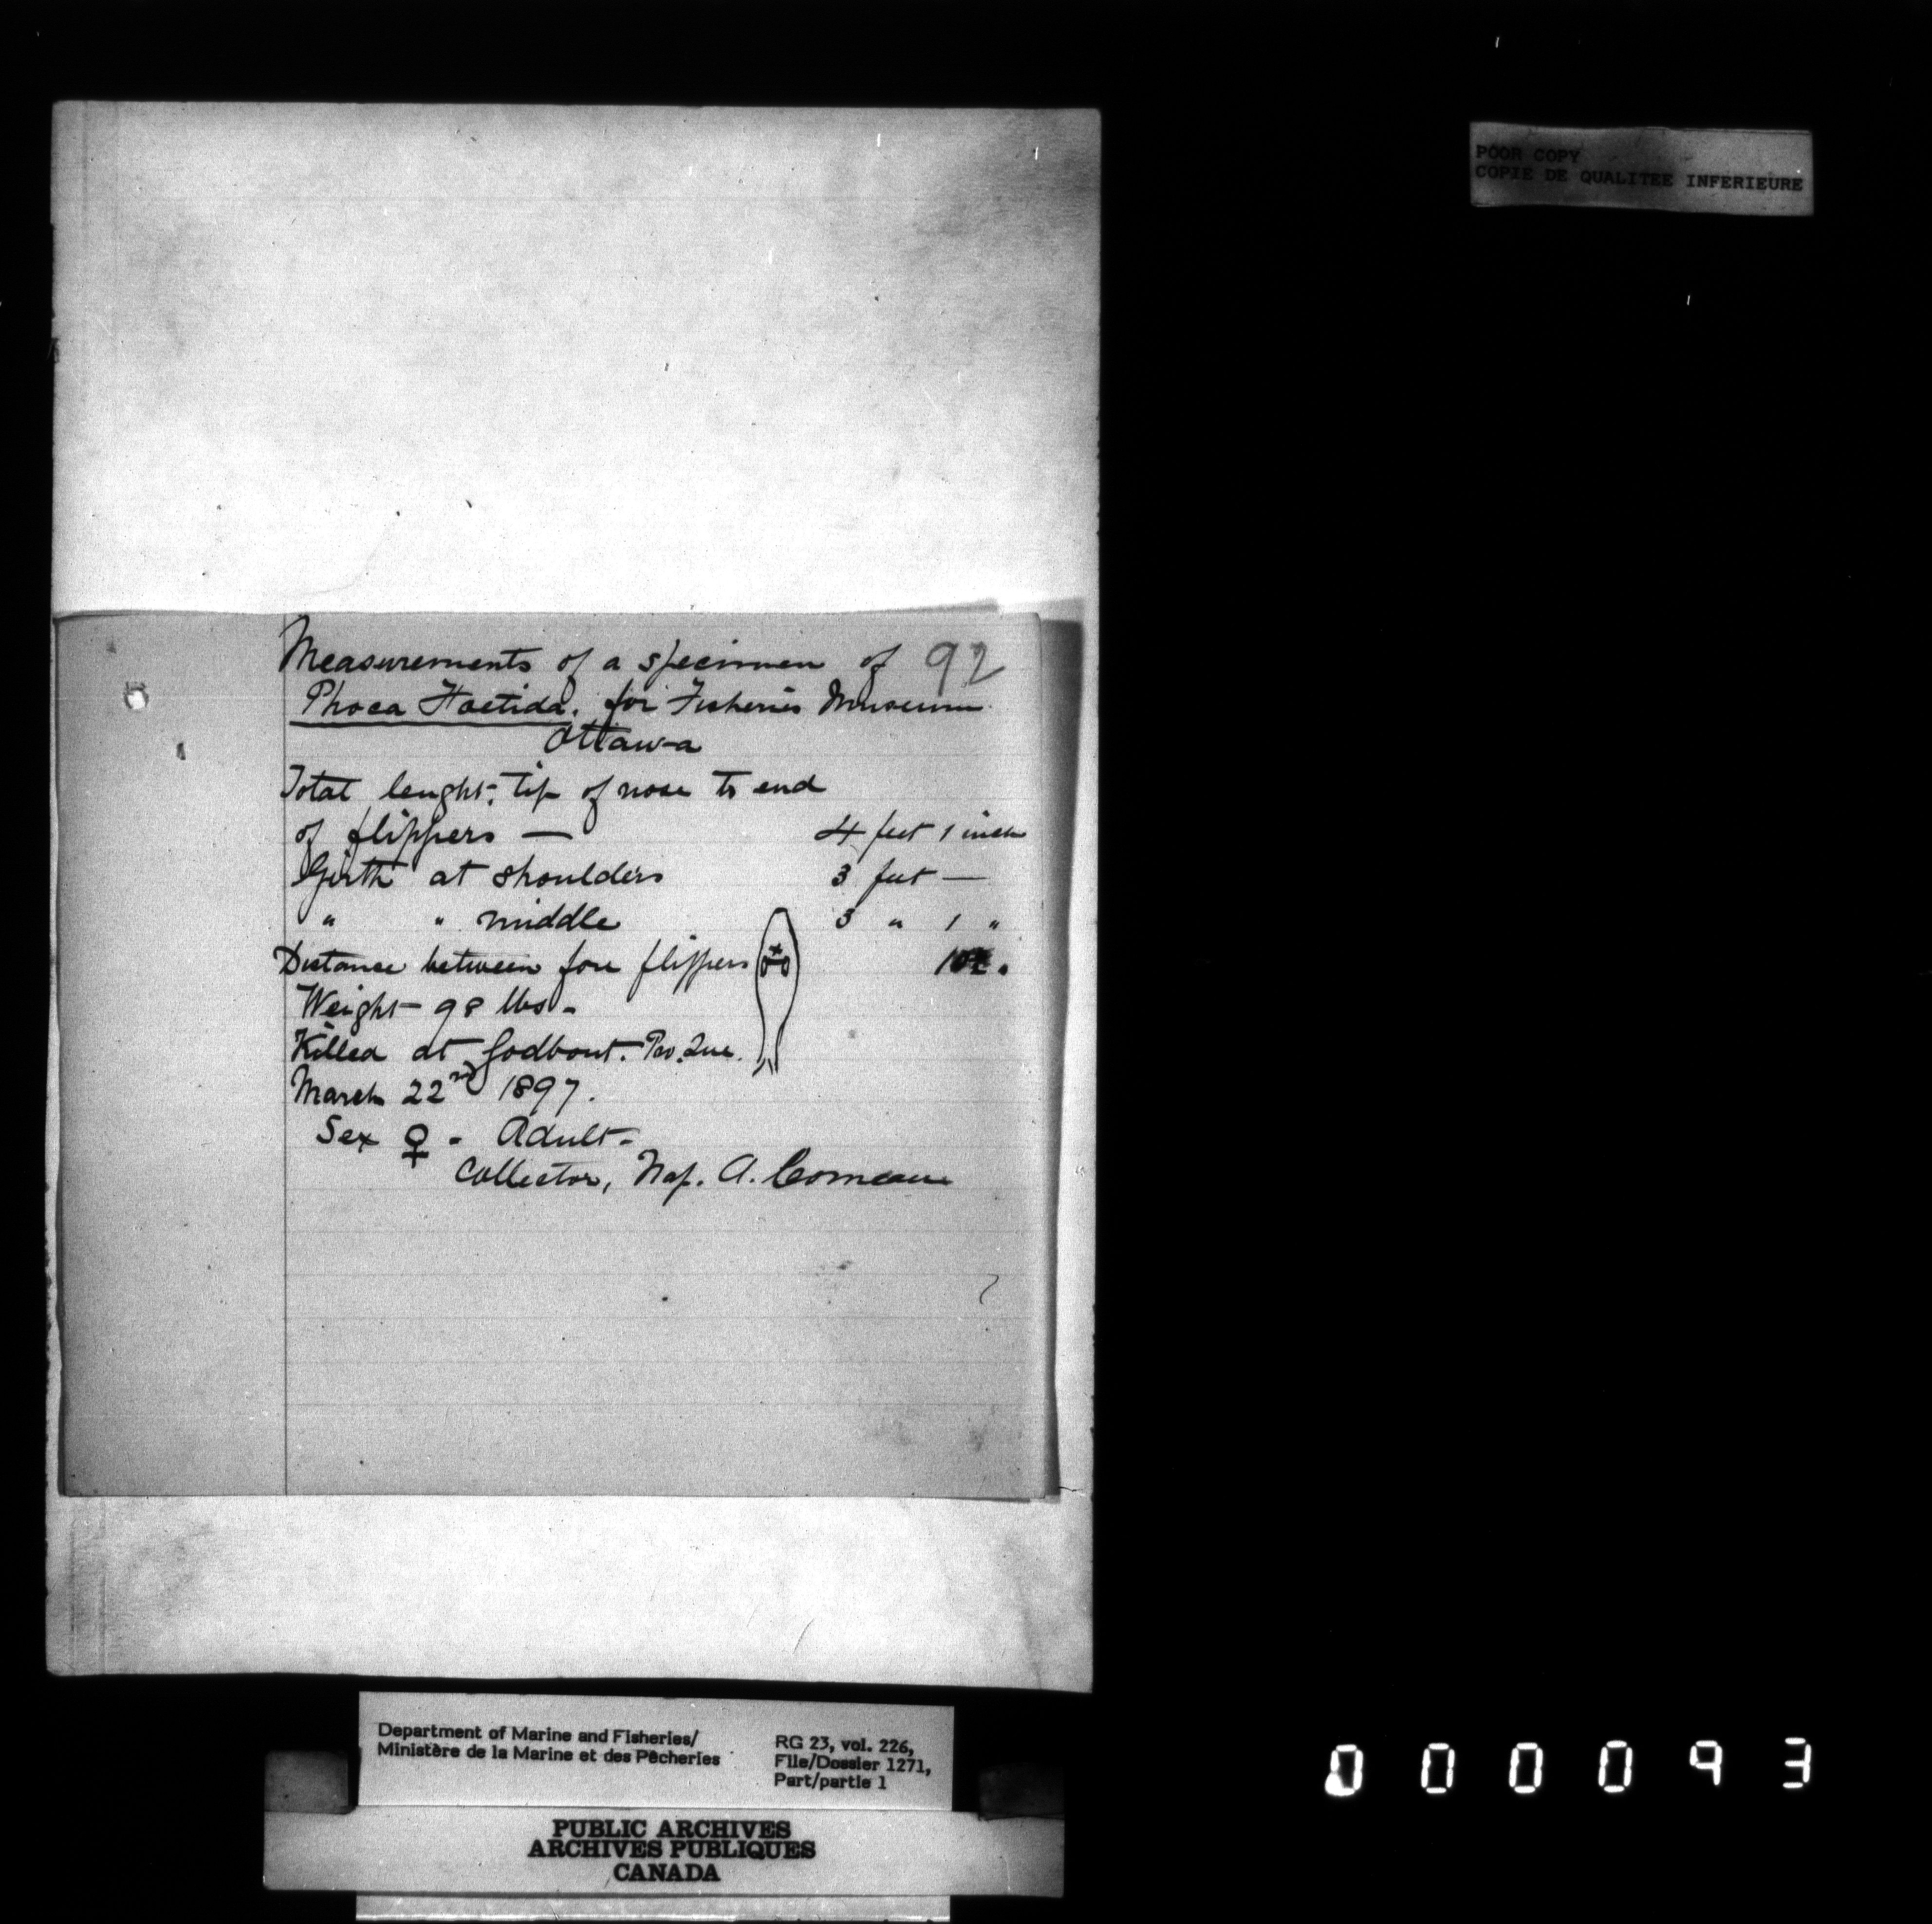 POOR COPY
COPIE DE QUALITEE INFERIEURE
92
Measurements of a specimen of
Phoca Foetida. for Fisheries Museum
Ottawa
Total lenght. tip of nose to end
of flippers — 4 feet 1 inch
Girth at shoulders 3 feet —
" " middle 3 " 1 "
Distance between fore flippers
Weight - 98 lbs -
Killed at Godbout. Pro. Que.
March 22nd 1897.
Sex ♀ - Adult -
Collector, Nap. A. Comeau
Department of Marine and Fisheries/
Ministère de la Marine et des Pêcheries
RG 23, vol. 226,
File/Dossier 1271,
Part/partie 1
PUBLIC ARCHIVES
ARCHIVES PUBLIQUES
CANADA
000093